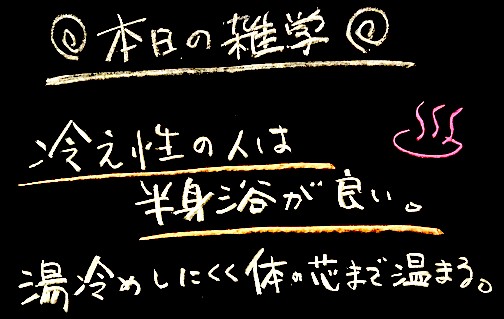 本日の雑学
冷え性の人は
半身浴が良い。
湯冷めしにくく体の芯まで温まる。